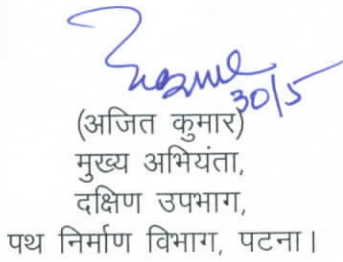 30/5
(अजित कुमार)
मुख्य अभियंता,
दक्षिण उपभाग,
पथ निर्माण विभाग, पटना।